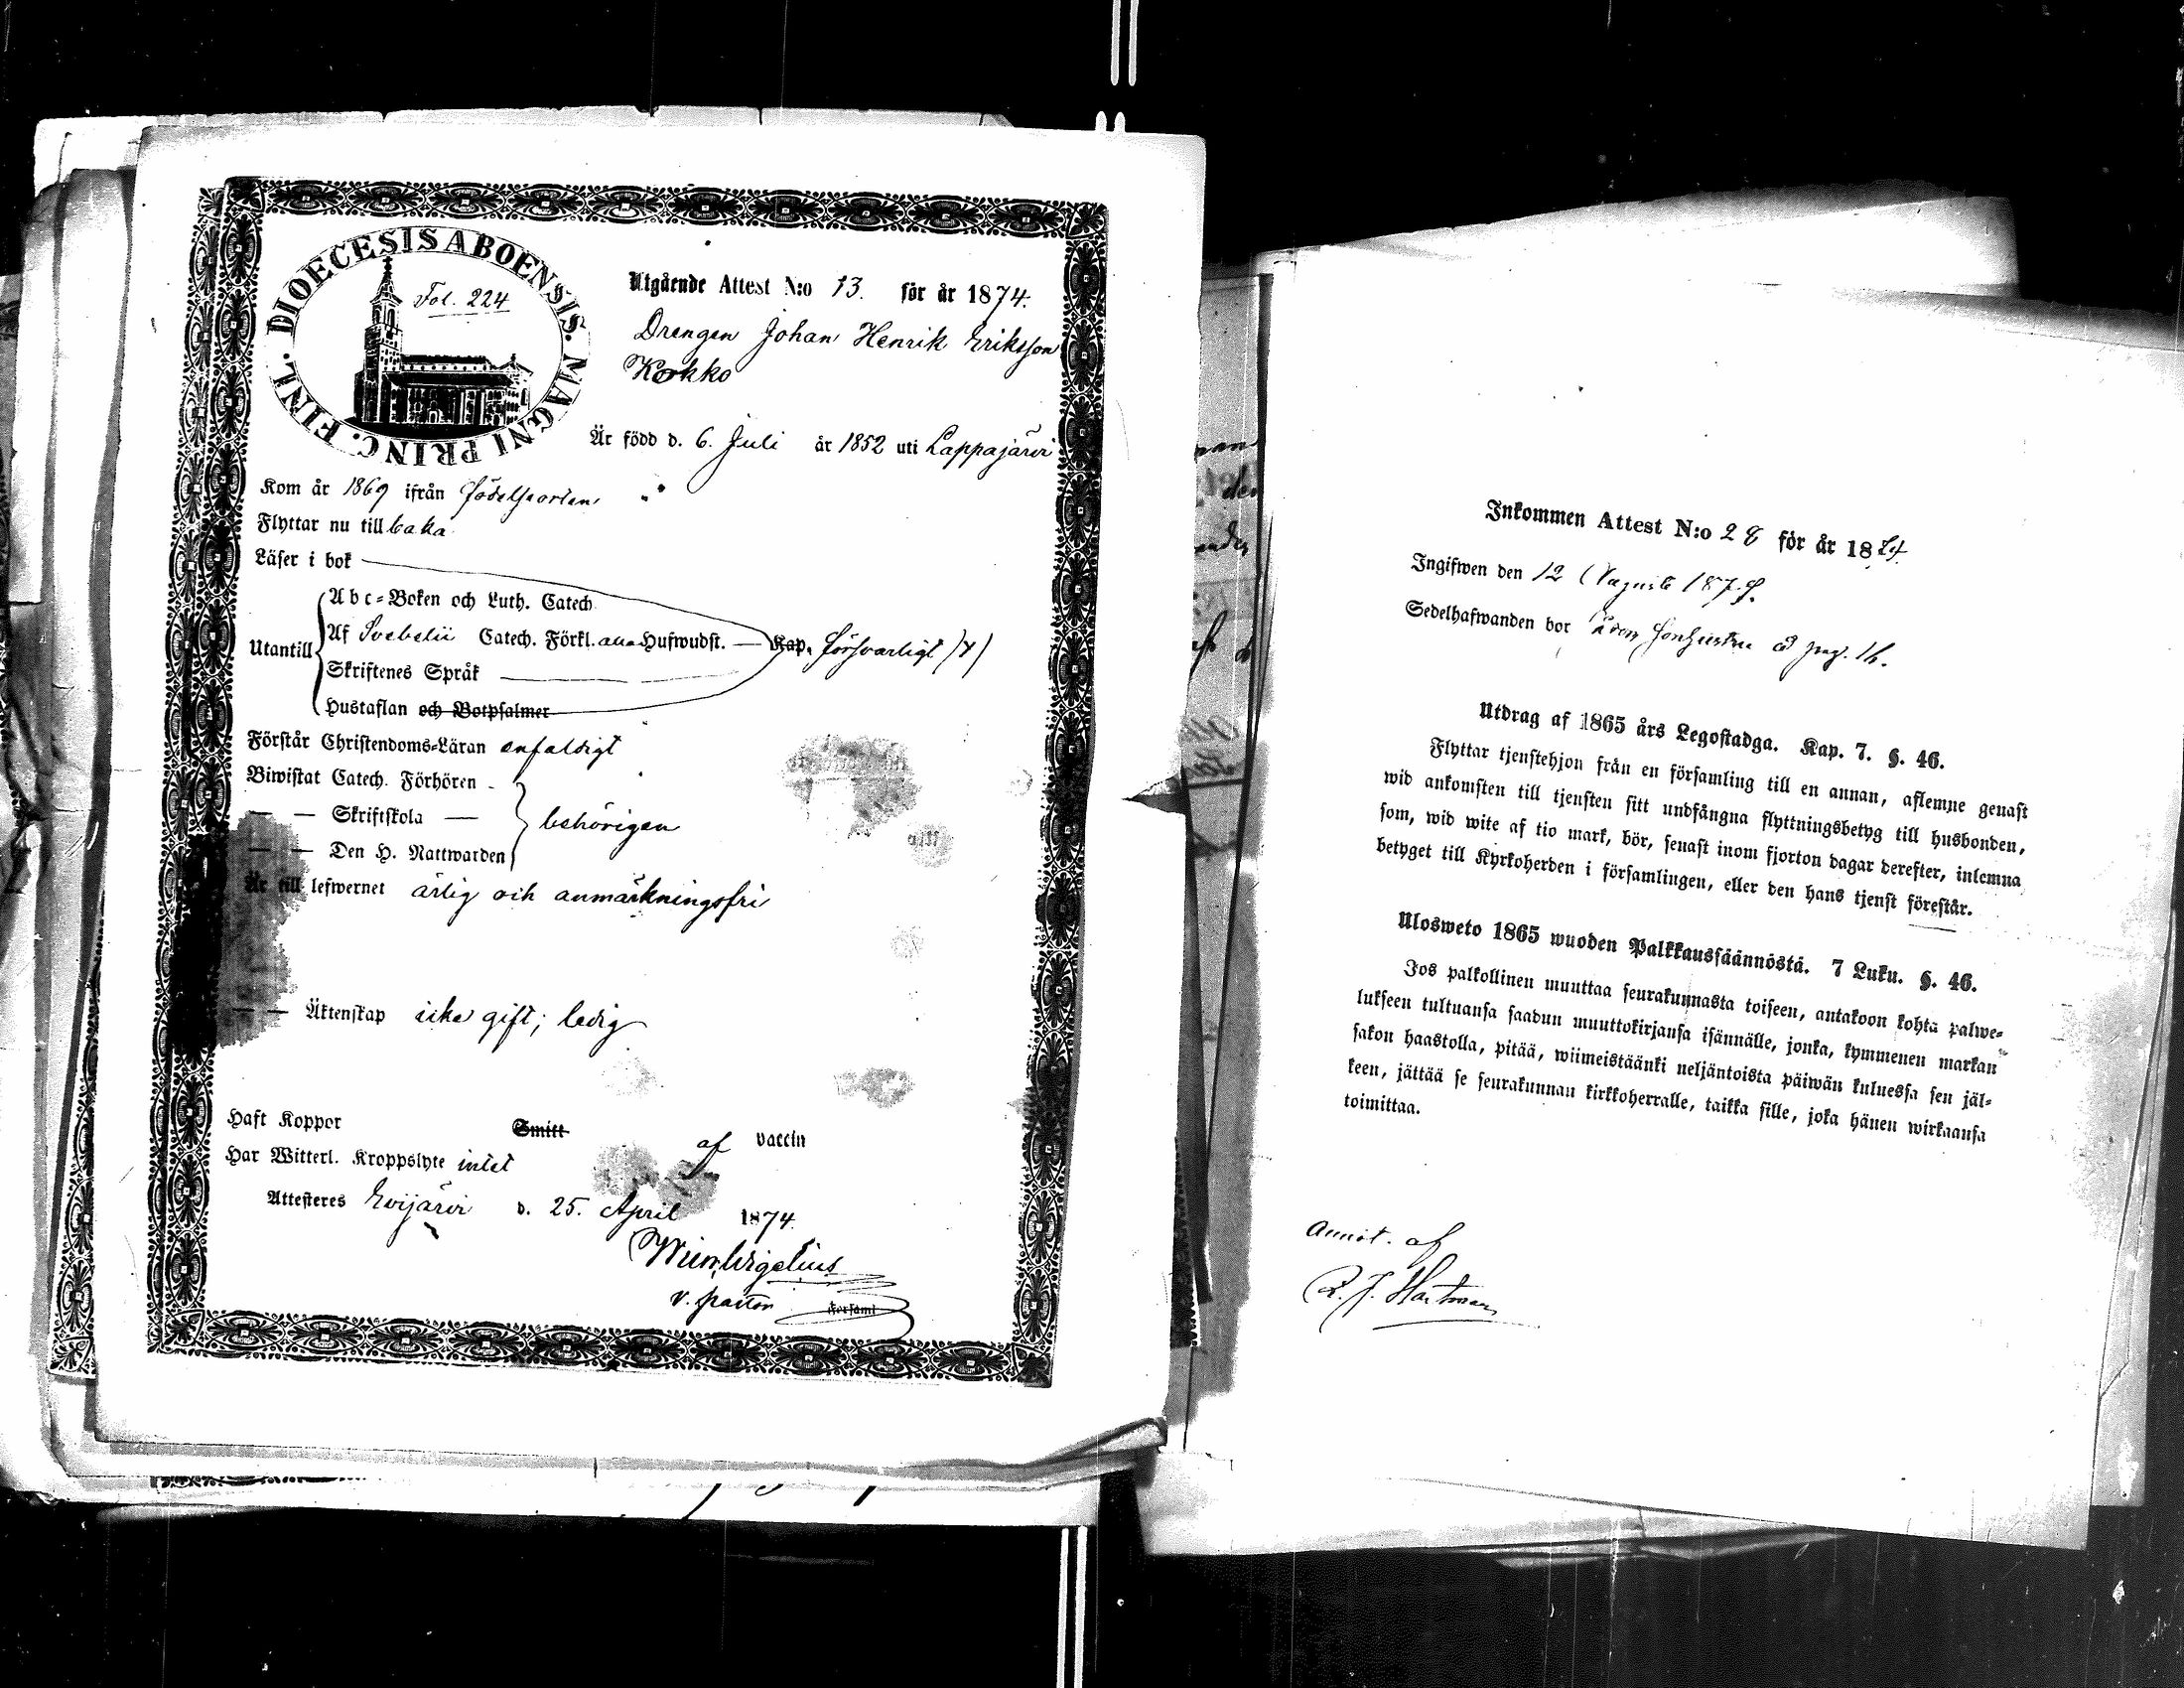 DIOECESIS ABOENSIS. MAGNI PRINC. FINL.
Fol. 224
Utgående Attest N:o 13. för år 1874.
Drengen Johan Henrik Eriksson
Kokko
Är född d. 6. Juli år 1852 uti Lappajärvi
Kom år 1869 ifrån födelseorten
Flyttar nu till baka
Läser i bok
Abc-Boken och Luth. Catech.
Utantill Af Svebelii Catech. Förkl. alla Hufwudst. — Kap. försvarligt
Skriftenes Språk
Hustaflan och Botpsalmer
Förstår Christendoms-Läran enfaldigt
Biwistat Catech. Förhören
— — Skriftskola — behörigen
— — Den H. Nattwarden
Är till lefwernet ärlig och anmärkningsfri
— — Äktenskap icke gift; ledig
Haft Koppor Smitt af vaccin
Har Witterl. Kroppslyte intet
Attesteres Evijärvi d. 25. April 1874.
Wigelius
v. pastor Församl
Inkommen Attest N:o 28 för år 1874.
Ingifwen den 12 Augusti 187
Sedelhafwanden bor pag. 16.
Utdrag af 1865 års Legostadga. Kap. 7. §. 46.
Flyttar tjenstehjon från en församling till en annan, aflemne genast
wid ankomsten till tjensten sitt undfångna flyttningsbetyg till husbonden,
som, wid wite af tio mark, bör, senast inom fjorton dagar derefter, inlemna
betyget till Kyrkoherden i församlingen, eller den hans tjenst förestår.
Ulosweto 1865 wuoden Palkkaussäännöstä. 7 Luku. §. 46.
Jos palkollinen muuttaa seurakunnasta toiseen, antakoon kohta palwe-
lukseen tultuansa saadun muuttokirjansa isännälle, jonka, kymmenen markan
sakon haastolla, pitää, wiimeistäänki neljäntoista päiwän kuluessa sen jäl-
keen, jättää se seurakunnan kirkkoherralle, taikka sille, joka hänen wirkaansa
toimittaa.
Annot. af
Hartman